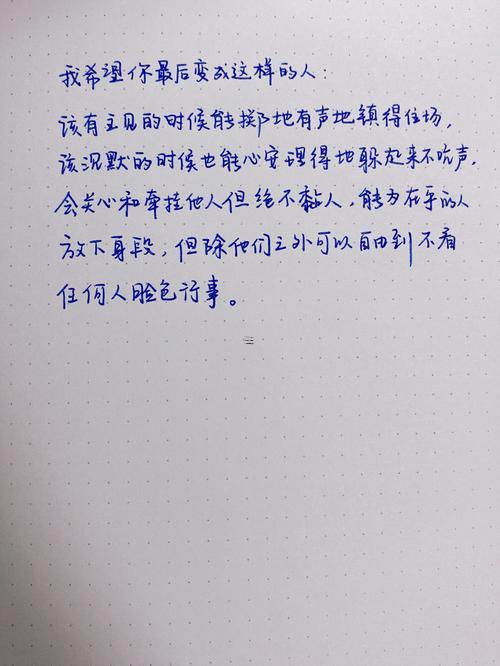 我希望你最后变成这样的人：
该有主见的时候能掷地有声地镇得住场，
该沉默的时候也能心安理得地躲起来不吭声，
会关心和牵挂他人但绝不黏人，能为在乎的人
放下身段，但除他们之外可以自由到不看
任何人脸色行事。